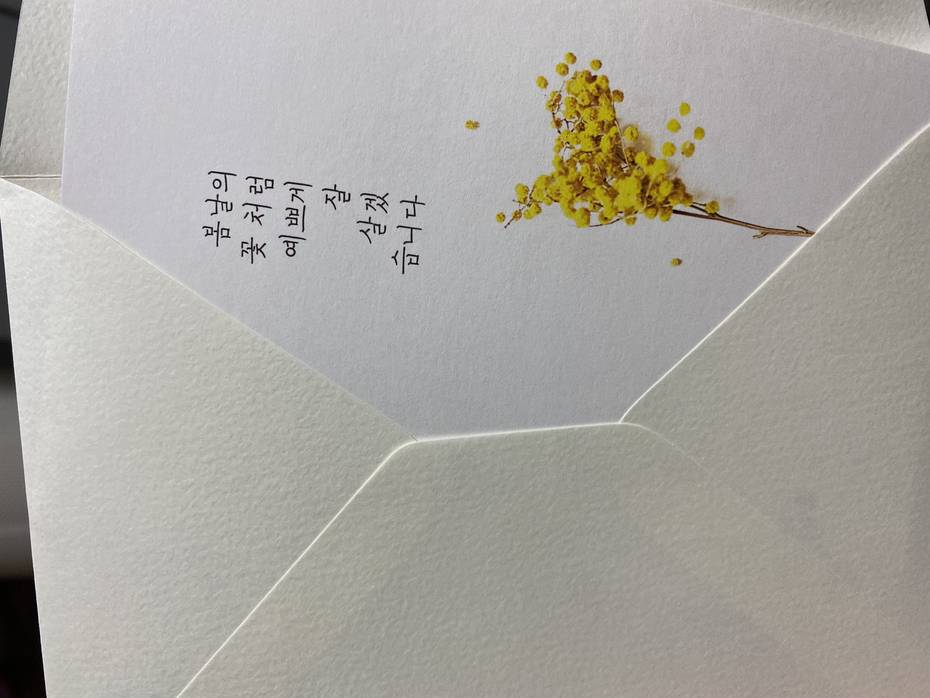 봄날의
꽃처럼
예쁘게
잘
살겠
습니다